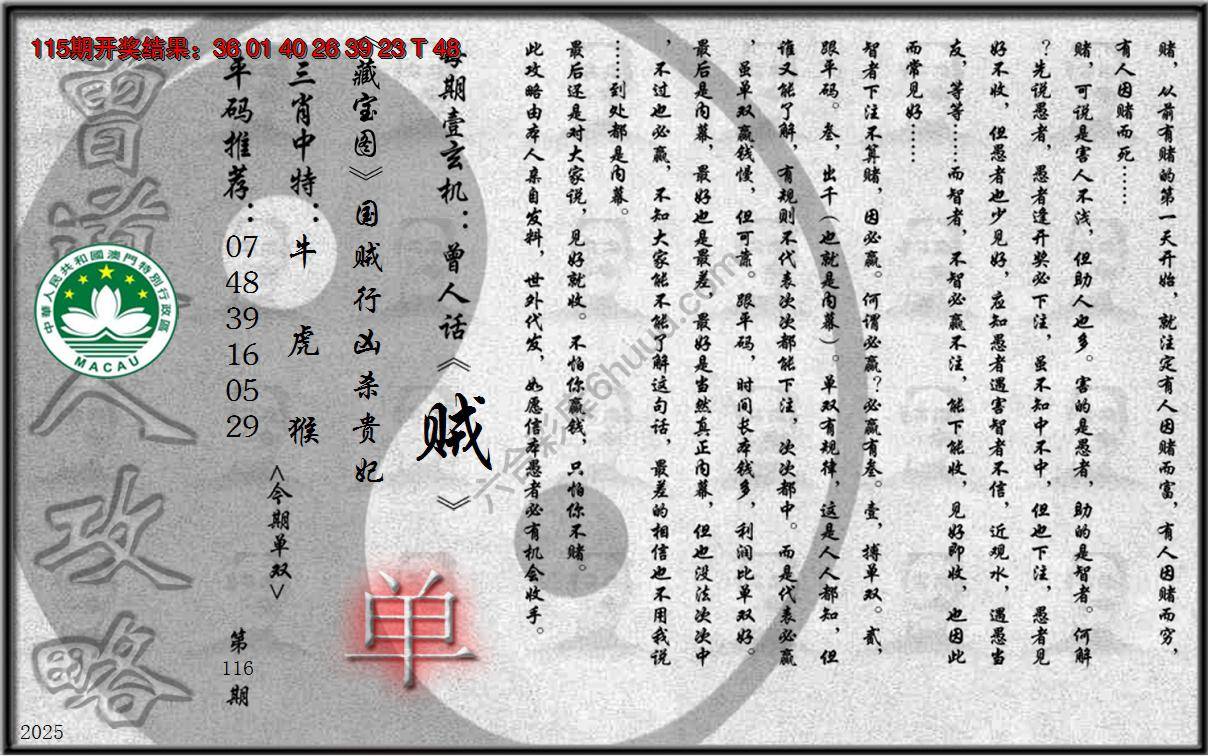 115期开奖结果：36 01 40 26 39 23 T 48
赌，从前有赌的第一天开始，就注定有人因赌而富，有人因赌而穷，
有人因赌而死……
赌，可说是害人不浅，但助人也多。害的是愚者，助的是智者。何解
？先说愚者，愚者逢开奖必下注，虽不知中不中，但也下注，愚者见
好不收，但愚者也少见好，应知愚者遇害智者不信，近观水，遇愚当
友，等等……而智者，不智必赢不注，能下能收，见好即收，也因此
而常见好……
智者下注不算赌，因必赢。何谓必赢？必赢有叁。壹，搏单双。贰，
跟平码。叁，出千（也就是内幕）。单双有规律，这是人人都知，但
谁又能了解，有规则不代表次次都能下注，次次都中。而是代表必赢
，虽单双赢钱慢，但可靠。跟平码，时间长本钱多，利润比单双好。
最后是内幕，最好也是最差，最好是当然真正内幕，但也没法次次中
，不过也必赢，不知大家能不能了解这句话，最差的相信也不用我说
……到处都是内幕。
最后还是对大家说，见好就收。不怕你赢钱，只怕你不赌。
此攻略由本人亲自发料，世外代发，如愿信本愚者必有机会收手。
每期壹玄机：曾人话《贼》
《藏宝图》国贼行凶杀贵妃
三肖中特：牛 虎 猴
平码推荐：
07
48
39
16
05
29
<今期单双>
单
第
116
期
曾道人攻略
中華人民共和國澳門特別行政區
MACAU
六合彩库6huuu.com
2025